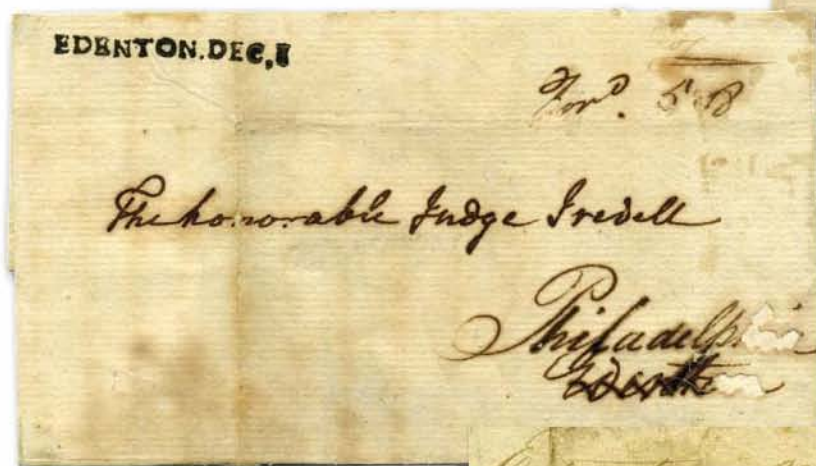 EDENTON.DEC,8
Forᵈ. 5 8
The honorable Judge Iredell
Philadelphia
Edenton